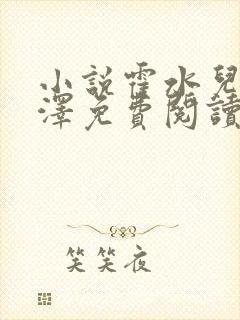 小說霍水兒
澤免費閱讀
笑笑夜